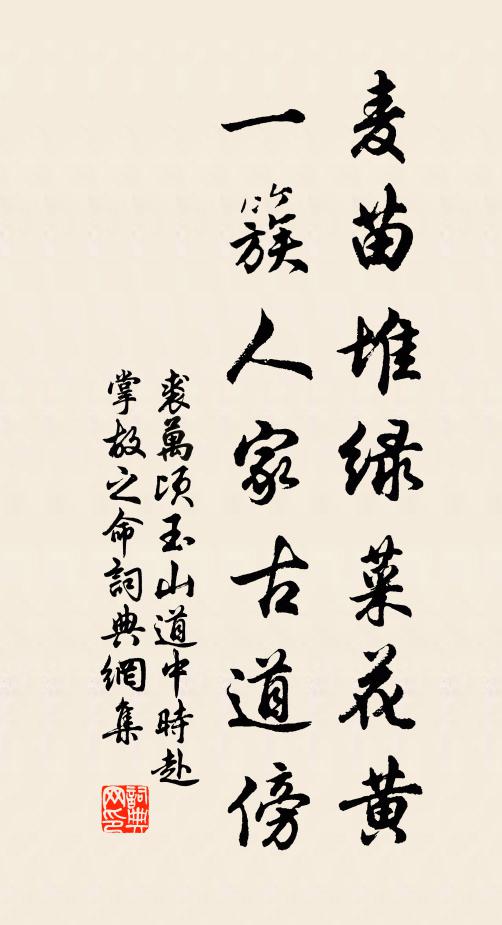 麦苗堆绿菜花黄
一簇人家古道傍
裘萬頃玉山道中時赴
掌故之命詞典網集
詞典网印